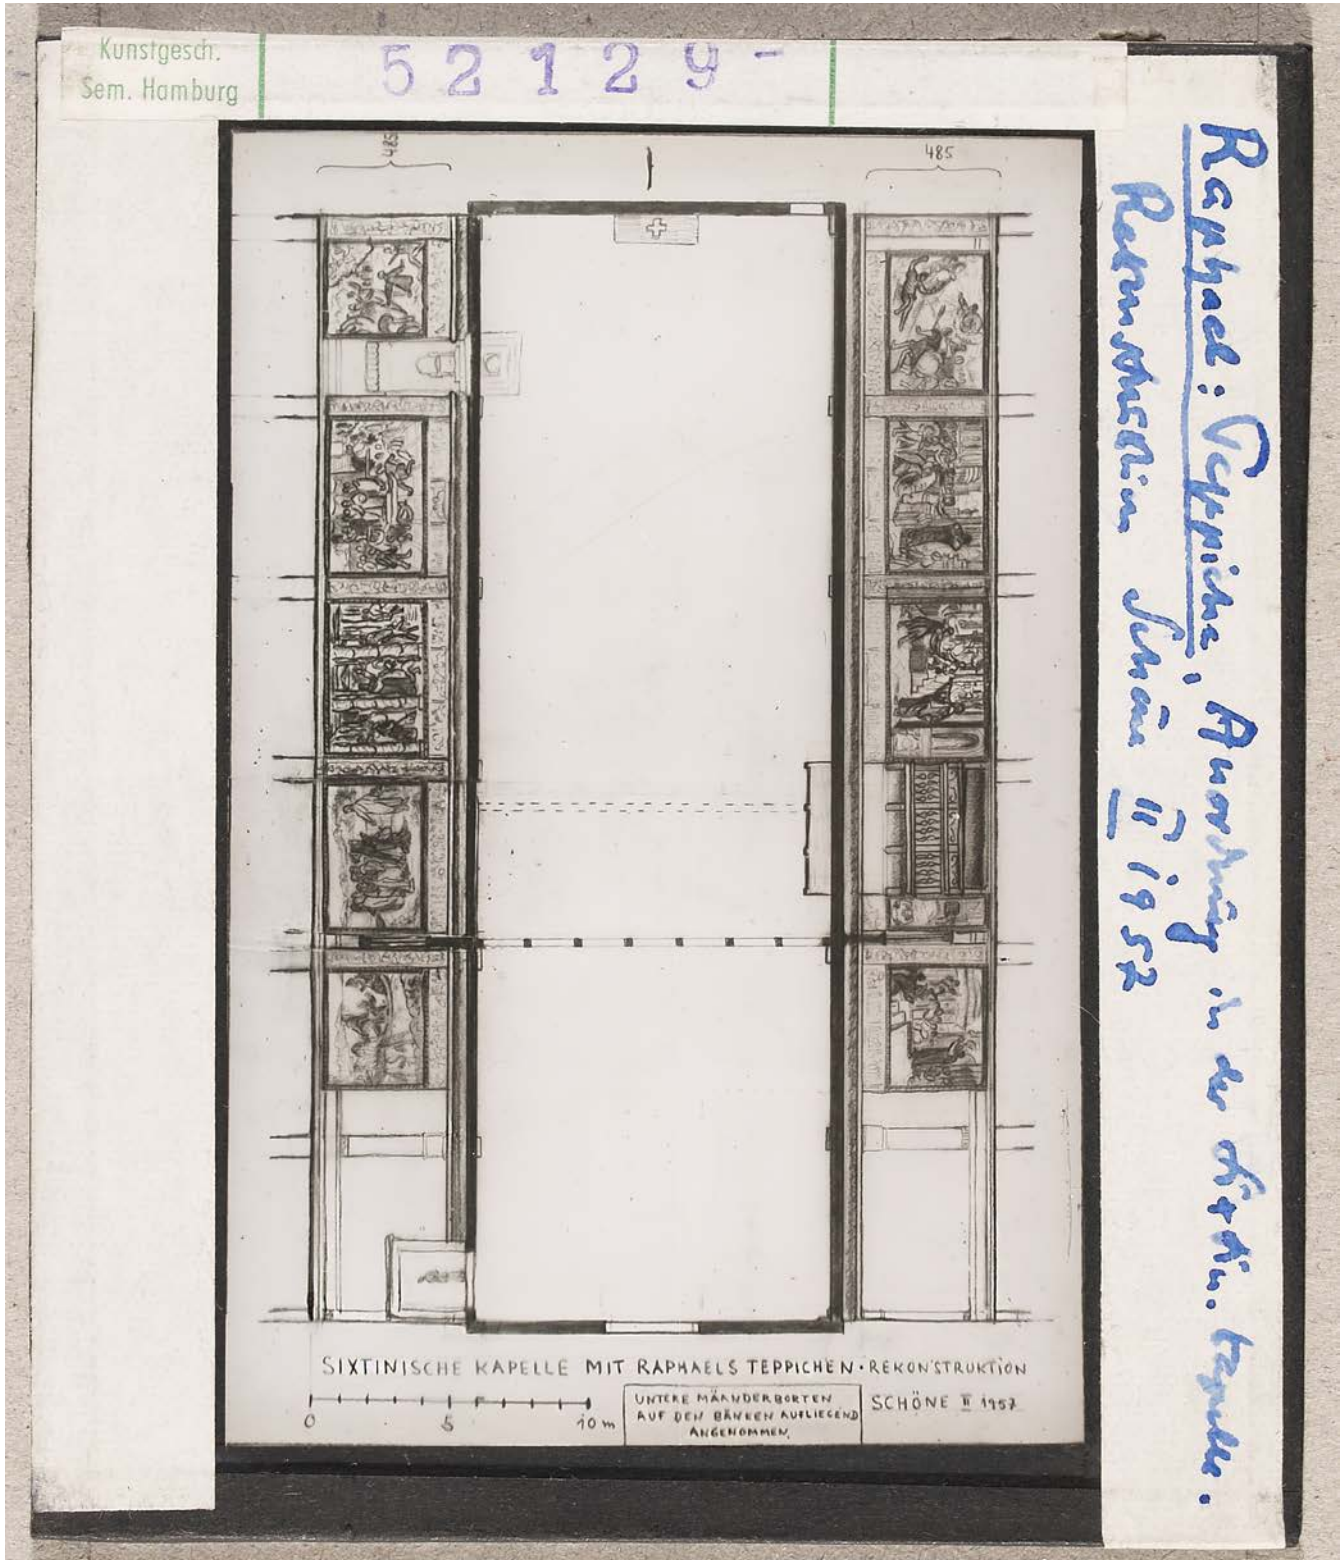 Kunstgesch.
Sem. Hamburg
52129-
485
485
Raphael: Teppiche, Anordnung in der Sixtin. Kapelle.
Rekonstruktion Schöne II 1957
SIXTINISCHE KAPELLE MIT RAPHAELS TEPPICHEN · REKONSTRUKTION
0 5 10 m
UNTERE MÄANDERBORTEN
AUF DEN BÄNKEN AUFLIEGEND
ANGENOMMEN.
SCHÖNE II 1957